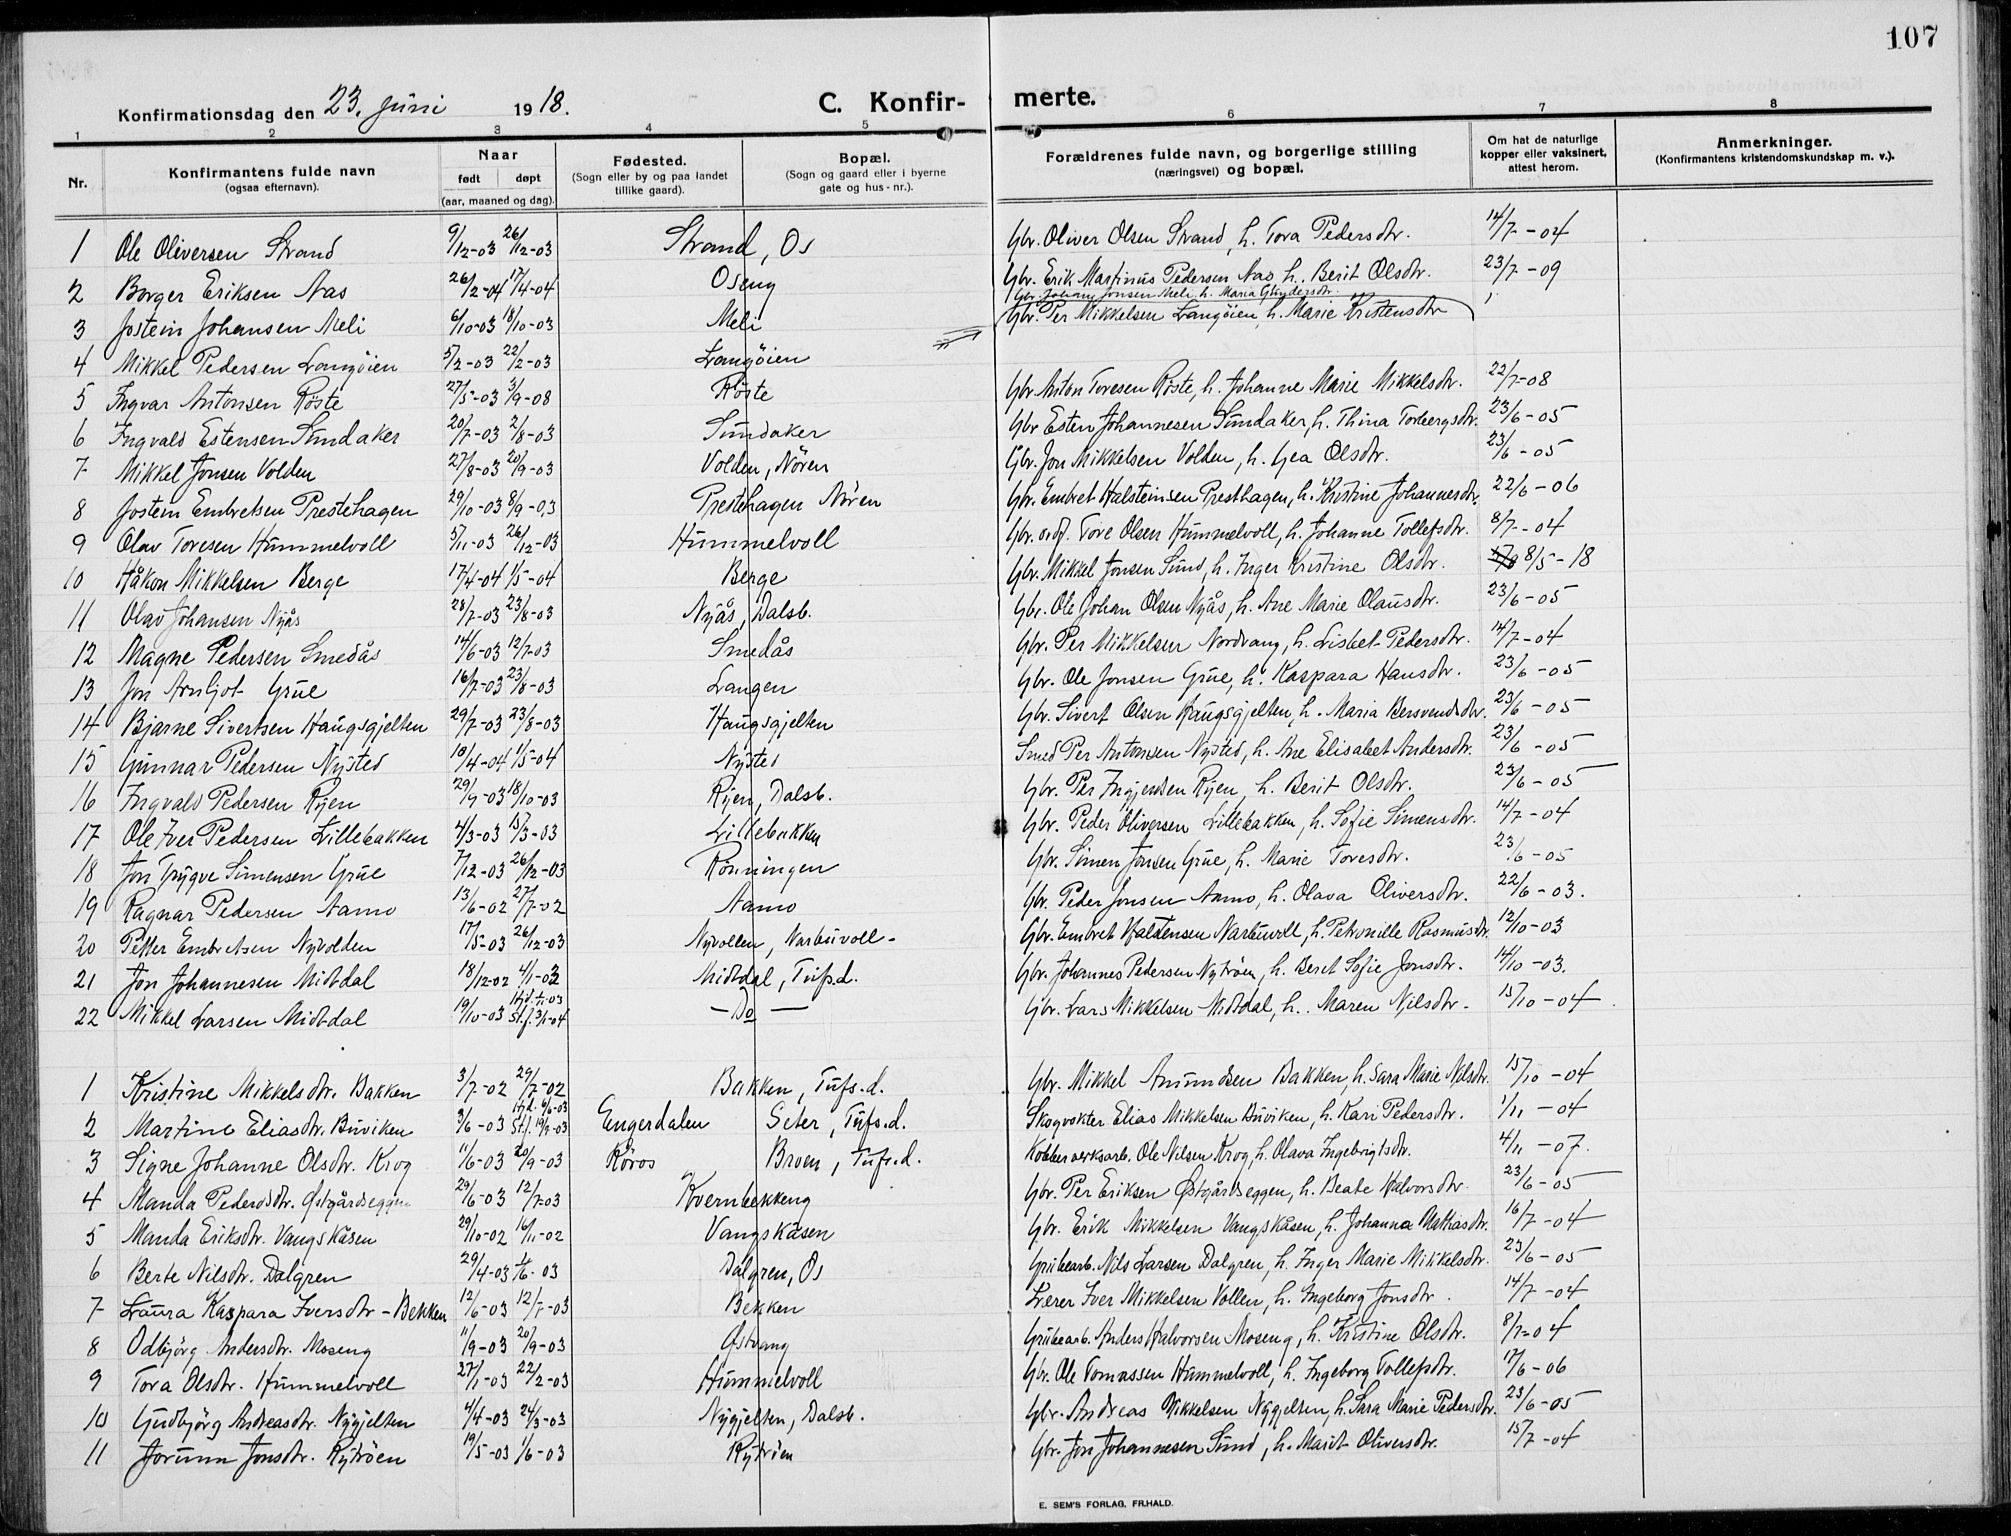 107
Konfirmationsdag den 23. juni 1918. C. Konfir- merte.
1 2 3 4 5 6 7 8
Nr. Konfirmantens fulde navn (ogsaa efternavn). Naar født døpt (aar, maaned og dag). Fødested. (Sogn eller by og paa landet tillike gaard). Bopæl. (Sogn og gaard eller i byerne gate og hus-nr.). Forældrenes fulde navn, og borgerlige stilling (næringsvei) og bopæl. Om hat de naturlige kopper eller vaksinert, attest herom. Anmerkninger. (Konfirmantens kristendomskundskap m. v.).
1 Ole Oliversen Strand 9/12-03 26/12-03 Strand, Os Gbr. Oliver Olsen Strand, h. Tora Pedersdtr. 14/7-04
2 Borger Eriksen Nas 26/2-04 17/4-04 Oseng Gbr. Erik Martinus Pedersen Nas h. Berit Olsdtr. 23/7-09
Gbr. Johans Jonsen Meli h. Maria
3 Jostein Johansen Meli 6/10-03 18/10-03 Meli Gbr. Per Mikkelsen Langøien, h. Marie Kristensdtr
4 Mikkel Pedersen Langöien 5/2-03 22/2-03 Langöien
5 Ingvar Antonsen Röste 27/5-03 3/9-08 Röste Gbr. Anton Toresen Röste, h. Johanne Marie Mikkelsdtr. 22/7-08
6 Ingvald Estensen Sundaker 20/7-03 2/8-03 Sundaker Gbr Esten Johannesen Sundaker, h. Thina Torbergsdtr. 23/6-05
7 Mikkel Jonsen Volden 27/8-03 20/9-03 Volden, Nören Gbr. Jon Mikkelsen Volden, h. Gea Olsdtr. 23/6-05
8 Jostein Embretsen Prestehagen 29/10-03 8/9-03 Prestehagen Nören Gbr. Embret Halsteinsen Presthagen, h. Kristine Johannesdtr. 22/6-06
9 Olav Toresen Hummelvoll 5/11-03 26/12-03 Hummelvoll Gbr. Tore Olsen Hummelvoll, h. Johanne Tollefsdtr. 8/7-04
10 Håkon Mikkelsen Berge 17/4-04 1/5-04 Berge Gbr. Mikkel Jonsen Sund, h. Inger Kristine Olsdtr. 8/5-18
11 Olav Johansen Nyås 28/7-03 23/8-03 Nyås, Dalsb. Gbr. Ole Johan Olsen Nyås, h. Ane Marie Olausdtr. 23/6-05
12 Magne Pedersen Smedås 14/6-03 12/7-03 Smedås Gbr. Per Mikkelsen Nordvang, h. Lisbet Pedersdtr. 14/7-04
13 Jon Arnljot Grue 16/7-03 23/8-03 Langen Gbr. Ole Jonsen Grue, h. Kaspara Hansdtr. 23/6-05
14 Bjarne Sivertsen Haugsgjelten 29/7-03 23/8-03 Haugsgjelten Gbr. Sivert Olsen Haugsgjelten, h. Maria Bersvendsdtr. 23/6-05
15 Gunnar Pedersen Nysted 18/4-04 1/5-04 Nysted Smed Per Antonsen Nysted, h. Ane Elisabet Andersdtr. 23/6-05
16 Ingvald Pedersen Ryen 29/9-03 18/10-03 Ryen, Dalsb. Gbr. Per Ryen, h. Berit Olsdtr. 23/6-05
17 Ole Iver Pedersen Lillebakken 4/3-03 15/3-03 Lillebakken Gbr. Peder Oliversen Lillebakken, h. Sofie Simensdtr. 14/7-04
18 Jon Trygve Simensen Grue 7/12-03 26/12-03 Rönningen Gbr. Simen Jonsen Grue, h. Marie Toresdtr. 23/6-05
19 Ragnar Pedersen Aamo 13/6-02 27/7-02 Aamo Gbr. Peder Jonsen Aamo, h. Olava Oliversdtr. 22/6-03.
20 Petter Embretsen Nyvolden 17/5-03 26/12-03 Nyvollen, Narbuvoll- Gbr. Embret Halstensen Narbuvoll, h. Petronille Rasmusdtr. 12/10-03
21 Jon Johannesen Midtdal 18/12-02 4/1-03 Midtdal, Tufs.d. Gbr. Johannes Pedersen Nytröen, h. Beret Sofie Jonsdtr. 14/10-03.
22 Mikkel Larsen Midtdal 19/10-03 Hjd. 1/11-03 St.f. 3/1-04 - Do - Gbr. Lars Mikkelsen Midtdal, h. Maren Nilsdtr. 15/10-04.
1 Kristine Mikkelsdtr. Bakken 3/7-02 29/7-02 Bakken, Tufs.d. Gbr. Mikkel Amundsen Bakken, h. Sara Marie Nilsdtr. 15/10-04
2 Martine Eliasdtr. Buviken 3/6-03 Hjd. 6/6-03 St.f. 19/7-03 Engerdalen Seter, Tufs.d. Skogvokter Elias Mikkelsen Buviken, h. Kari Pedersdtr. 1/11-04
3 Signe Johanne Olsdtr. Krog 11/6-03 20/9-03 Röros Broen, Tufs.d. Kobberverksarb. Ole Nilsen Krog, h. Olava Ingebrigtsdtr. 4/11-07.
4 Manda Pedersdtr. Østgårdseggen 29/6-03 12/7-03 Kvernbekkeng Gbr. Per Eriksen Østgårdseggen, h. Beate Halvorsdtr. 23/6-05
5 Manda Eriksdtr. Vangskåsen 29/10-02 16/11-02 Vangskåsen Gbr. Erik Mikkelsen Vangskåsen, h. Johanna Mathiasdtr. 16/7-04
6 Berte Nilsdtr. Dalgren 29/4-03 1/6-03 Dalgren, Os Grubearb. Nils Larsen Dalgren, h. Inger Marie Mikkelsdtr. 23/6-05
7 Laura Kaspara Iversdtr - Bekken 12/6-03 12/7-03 Bekken Lærer Iver Mikkelsen Vollen, h. Ingeborg Jonsdtr. 14/7-04
8 Odbjörg Andersdtr. Moseng 11/9-03 20/9-03 Østvang Grubearb. Anders Halvorsen Moseng, h. Kristine Olsdtr. 8/7-04
9 Tora Olsdtr. Hummelvoll 27/1-03 22/2-03 Hummelvoll Gbr. Ole Tomassen Hummelvoll, h. Ingeborg Tollefsdtr. 17/6-06
10 Gudbjörg Andreasdtr. Nygjelten 4/4-03 24/3-03 Nygjelten, Dalsb. Gbr. Andreas Mikkelsen Nygjelten, h. Sara Marie Pedersdtr. 23/6-05
11 Jorunn Jonsdtr. Rytröen 19/5-03 1/6-03 Rytröen Gbr. Jon Johannesen Sund, h. Marit Oliversdtr. 15/7-04
E. SEM'S FORLAG, FR.HALD.